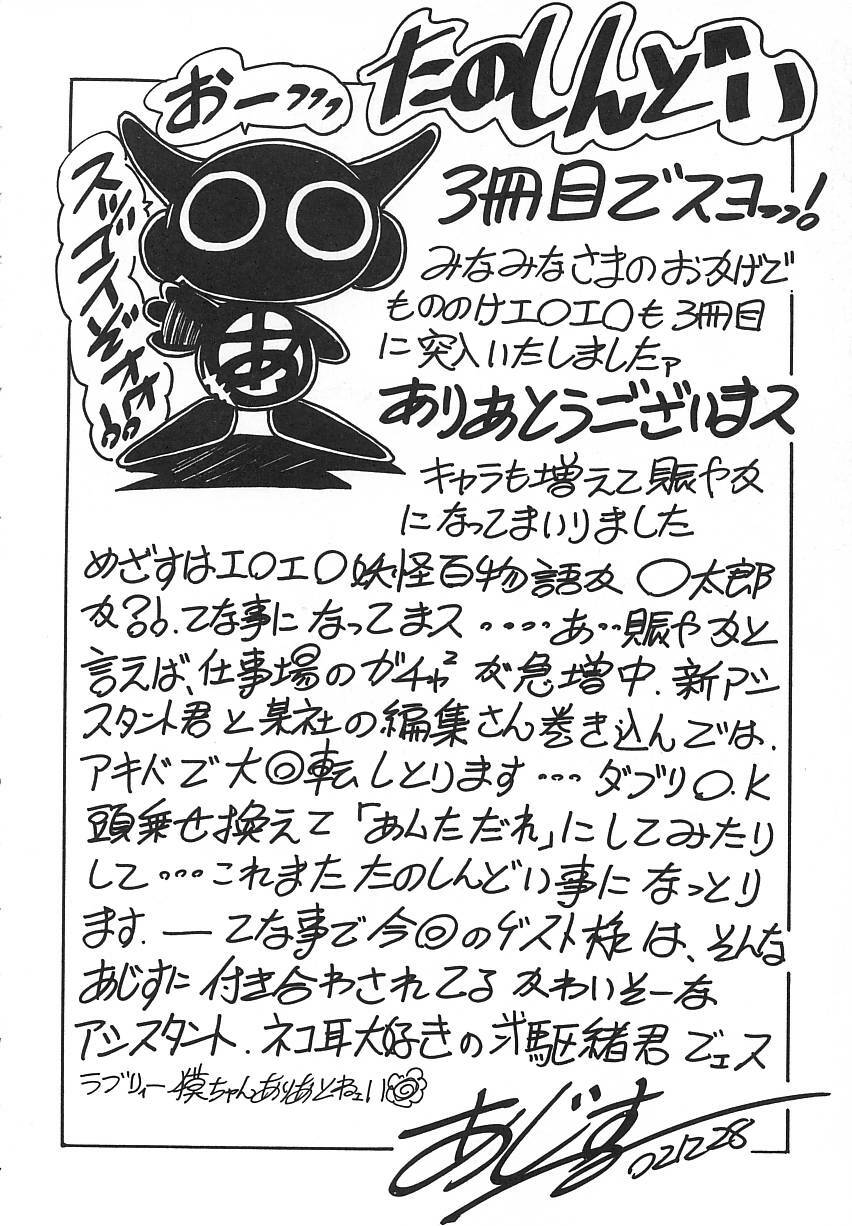 たのしんどい
おーっっっ
スッゲェイぞォォ!!
3冊目でスヨっっ!
みなみなさまのおかげで
もののけエ○エ○も3冊目
に突入いたしましたァ
ありあとうございまス
キャラも増えて賑やか
になってまいりました
めざすはエ○エ○妖怪百物語か ○太郎
か?!.てな事になってまス・・・・あ・・賑やかと
言えば、仕事場のガチャ²が急増中.新アシ
スタント君と某社の編集さん巻き込んでは.
アキバで大回転しとります・・・ダブりO.K
頭乗せ換えて「あんただれ」にしてみたり
して・・・これまたたのしんどい事になっとり
ます.―てな事で今回のゲスト様は、そんな
あじすに付き合わされてるかわいそーな
アシスタント.ネコ耳大好きの 駆緒君でェス
ラブリィー 獏ちゃんありあとねェい
あじす
02.12.28